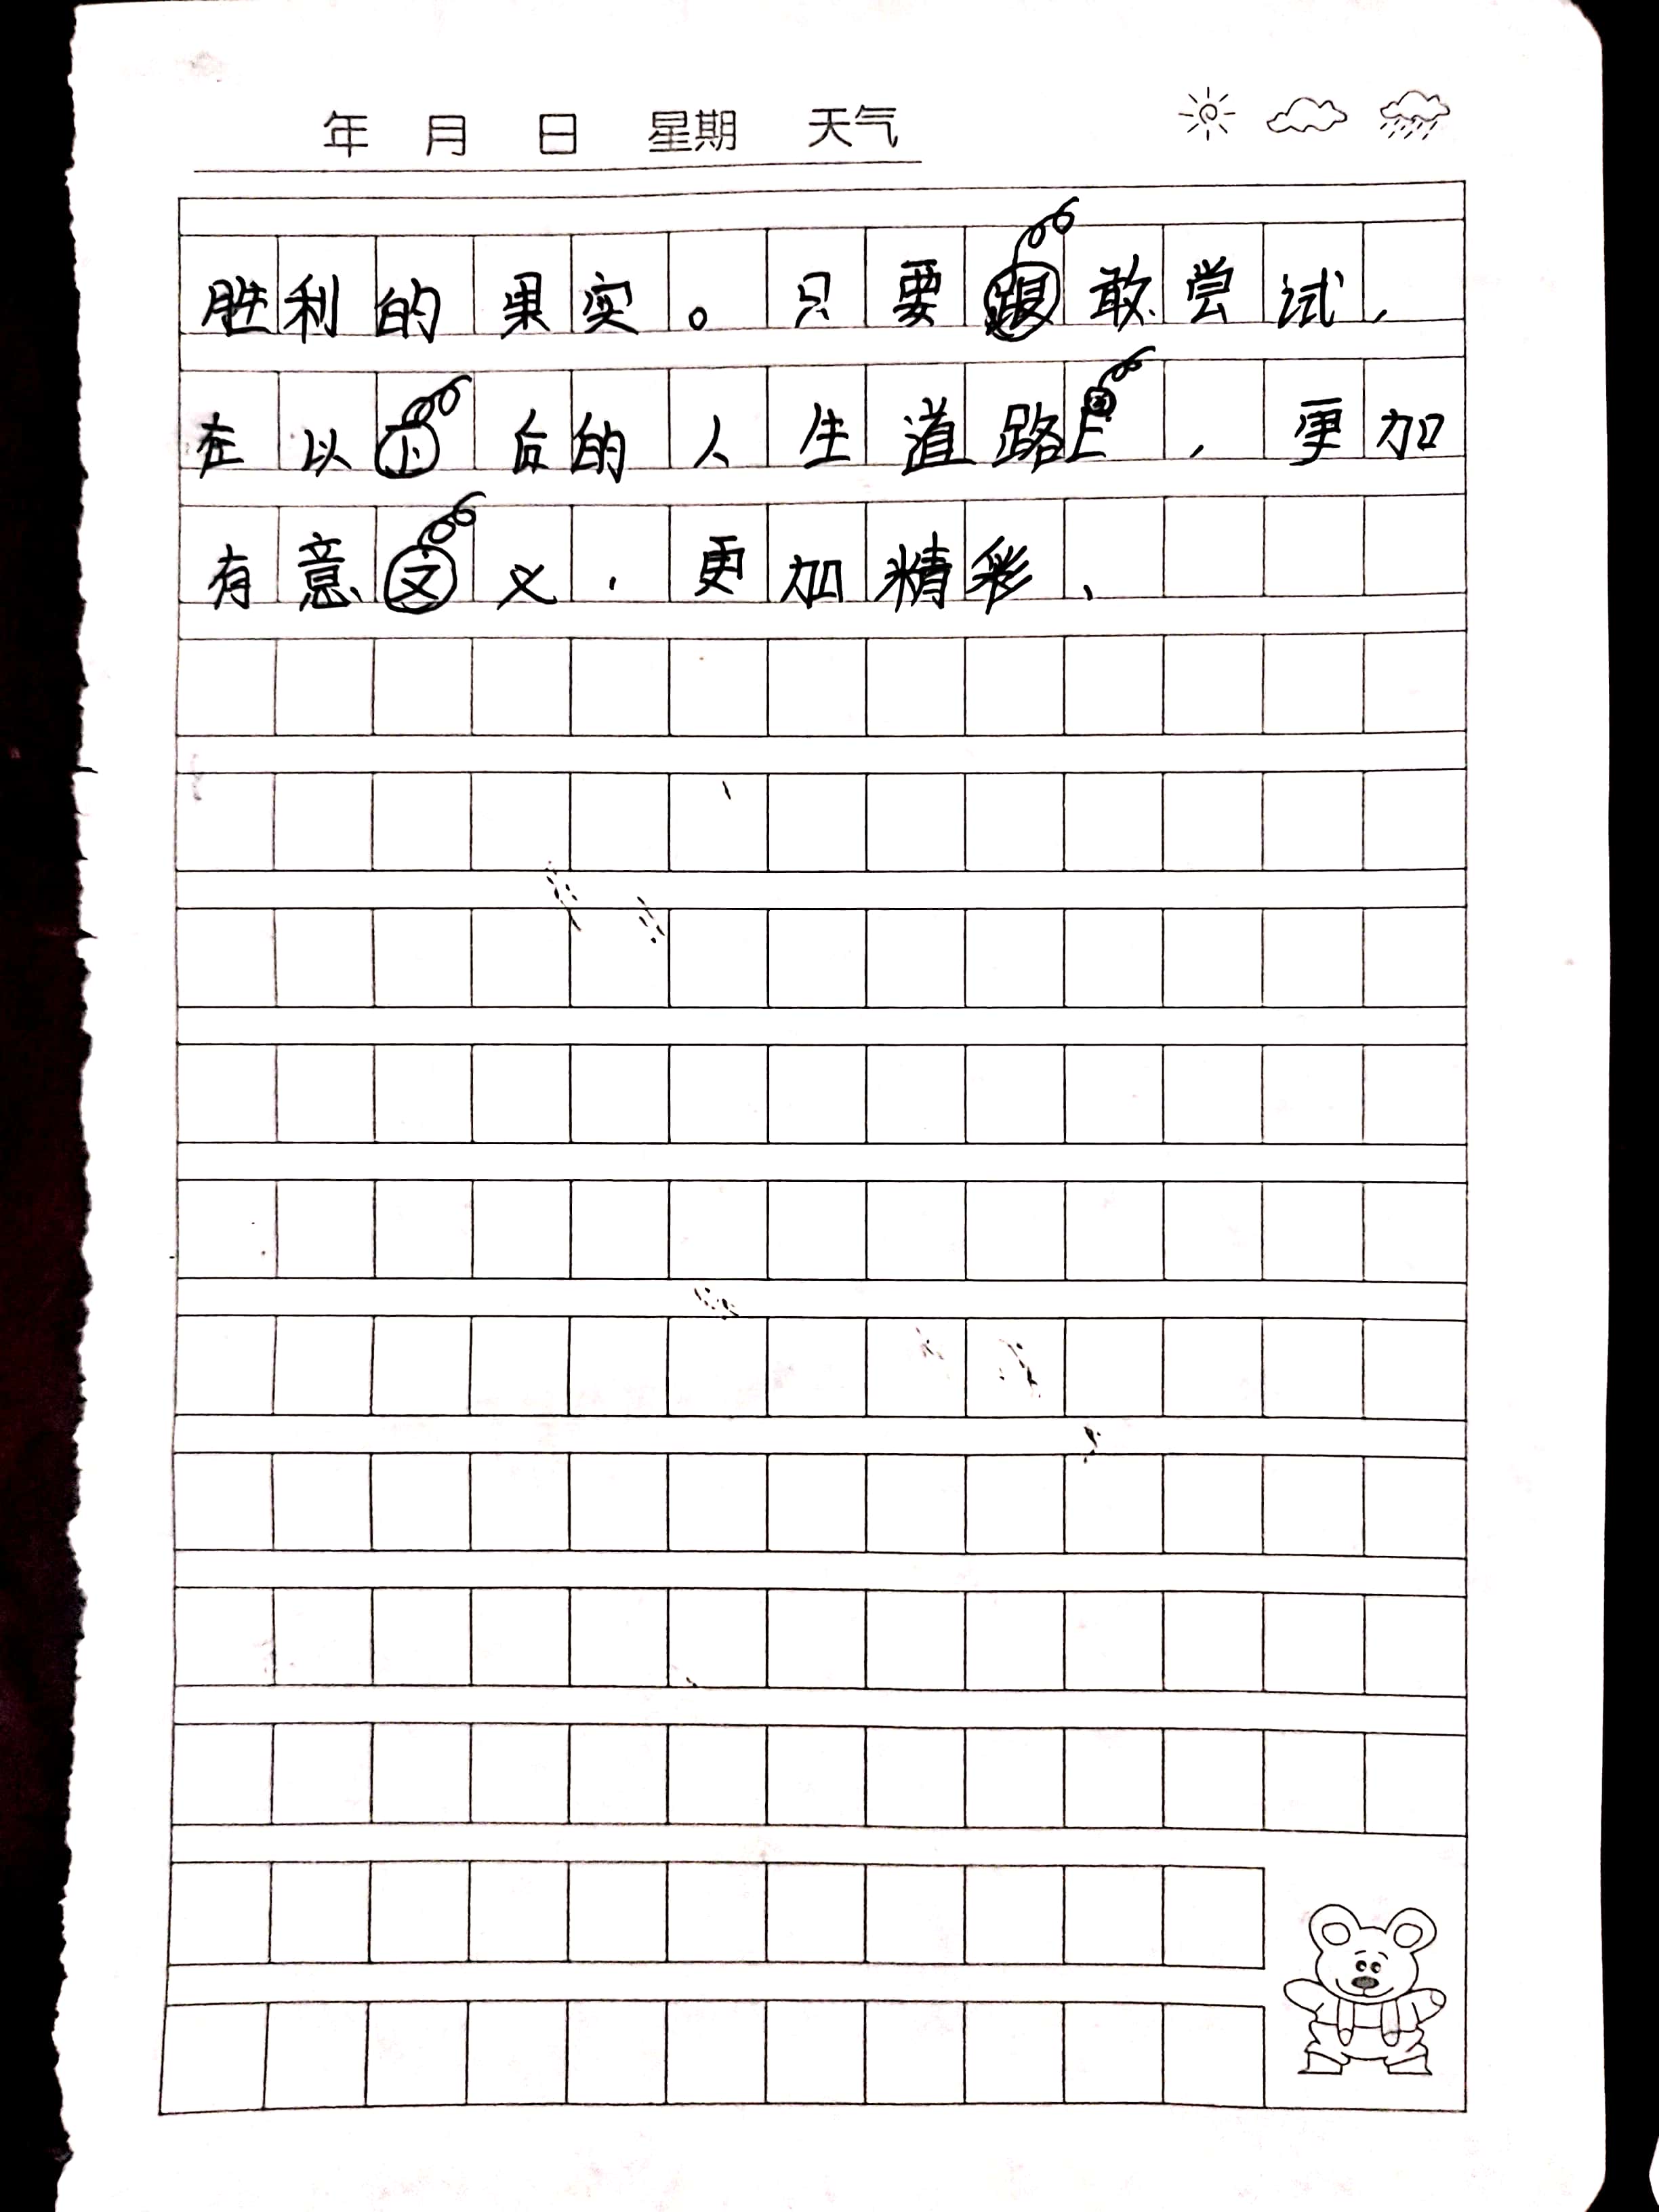 年 月 日 星期 天气
胜利的果实。只要敢尝试，
在以后的人生道路上，更加
有意义，更加精彩、